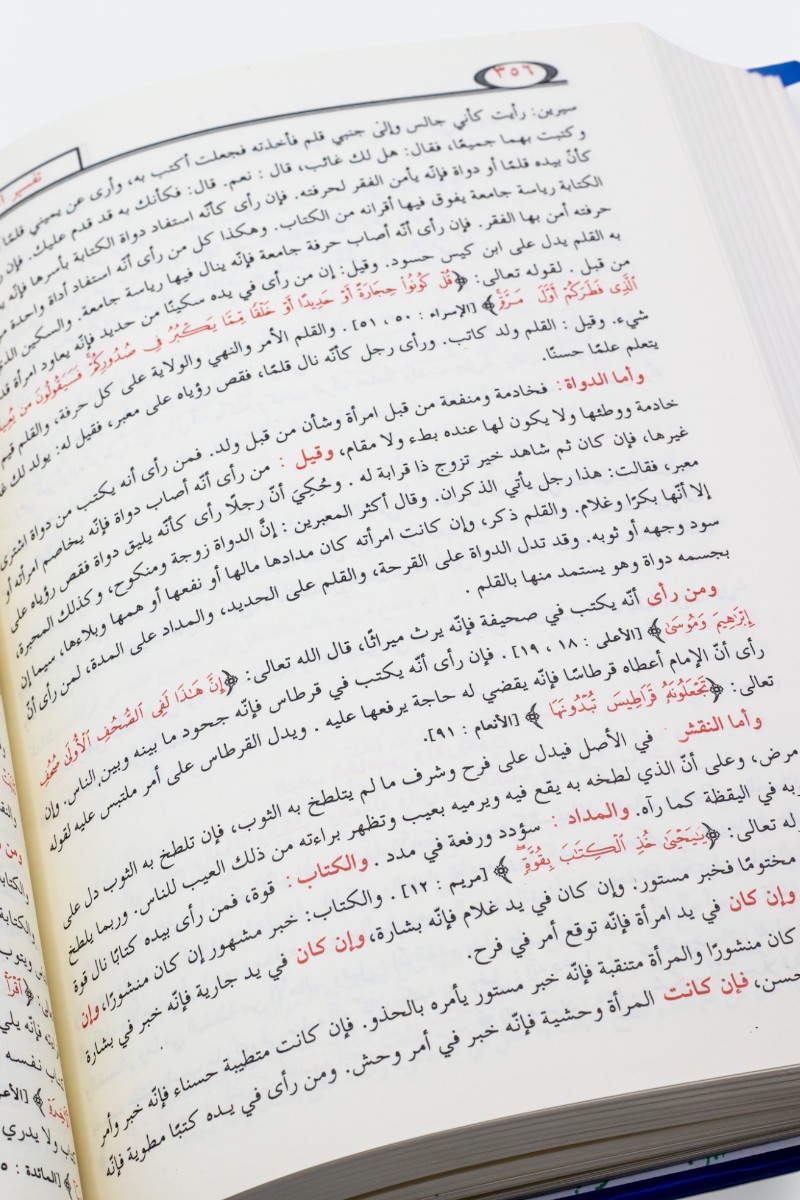 ٣٥٦
تفسير
سيرين: رأيت كأني جالس وإلى جنبي قلم فأخذته فجعلت أكتب به، وأرى عن يميني قلمًا
وكتبت بهما جميعًا، فقال: هل لك غائب، قال : نعم. قال: فكأنك به قد قدم عليك. فإن
كأنّ بيده قلمًا أو دواة فإنّه يأمن الفقر لحرفته. فإن رأى كأنّه استفاد دواة الكتابة بأسرها فإنّه
الكتابة رياسة جامعة يفوق فيها أقرانه من الكتاب. وهكذا كل من رأى أنّه استفاد أداة واحدة
حرفته أمن بها الفقر. فإن رأى أنّه أصاب حرفة جامعة فإنّه ينال فيها رياسة جامعة. والسكين
به القلم يدل على ابن كيس حسود. وقيل: إن من رأى في يده سكينًا من حديد فإنّه يعاود امرأة
من قبل . لقوله تعالى: ﴿قُلْ كُونُوا۟ حِجَارَةً أَوْ حَدِيدًا أَوْ خَلْقًا مِّمَّا يَكْبُرُ فِى صُدُورِكُمْ فَسَيَقُولُونَ مَن
الَّذِى فَطَرَكُمْ أَوَّلَ مَرَّةٍ﴾ [الإسراء : ٥٠ ، ٥١] . والقلم الأمر والنهي والولاية على كل حرفة، والقلم قيم
شيء. وقيل : القلم ولد كاتب. ورأى رجل كأنّه نال قلمًا، فقص رؤياه على معبر، فقيل له: يولد لك
يتعلم علمًا حسنًا.
وأما الدواة: فخادمة ومنفعة من قبل امرأة وشأن من قبل ولد. فمن رأى أنه يكتب من دواة اشترى
خادمة ووطئها ولا يكون لها عنده بطء ولا مقام، وقيل : من رأى أنّه أصاب دواة فإنّه يخاصم امرأته أو
غيرها، فإن كان ثم شاهد خير تزوج ذا قرابة له . وحُكِيَ أنّ رجلًا رأى كأنّه يليق دواة فقص رؤياه على
معبر، فقالت: هذا رجل يأتي الذكران. وقال أكثر المعبرين : إنَّ الدواة زوجة ومنكوح، وكذلك المحبرة،
إلا أنّها بكرًا وغلام. والقلم ذكر، وإن كانت امرأته كان مدادها مالها أو نفعها أو همها وبلاءها، سيما إن
سود وجهه أو ثوبه. وقد تدل الدواة على القرحة، والقلم على الحديد، والمداد على المدة، لمن رأى أنّ
بجسمه دواة وهو يستمد منها بالقلم .
ومن رأى أنّه يكتب في صحيفة فإنّه يرث ميراثًا، قال الله تعالى: ﴿إِنَّ هَـٰذَا لَفِى ٱلصُّحُفِ ٱلْأُولَىٰ صُحُفِ
إِبْرَٰهِيمَ وَمُوسَىٰ﴾ [الأعلى : ١٨ ، ١٩] . فإن رأى أنّه يكتب في قرطاس فإنّه جحود ما بينه وبين الناس. وإن
رأى أنّ الإمام أعطاه قرطاسًا فإنّه يقضي له حاجة يرفعها عليه . ويدل القرطاس على أمر ملتبس عليه لقوله
تعالى: ﴿تَجْعَلُونَهُۥ قَرَاطِيسَ تُبْدُونَهَا﴾ [الأنعام : ٩١].
وأما النقش في الأصل فيدل على فرح وشرف ما لم يتلطخ به الثوب، فإن تلطخ به الثوب دل على
مرض، وعلى أنّ الذي لطخه به يقع فيه ويرميه بعيب وتظهر براءته من ذلك العيب للناس. وربما يلطخ
وبه في اليقظة كما رآه. والمداد : سؤدد ورفعة في مدد . والكتاب : قوة، فمن رأى بيده كتابًا نال قوة
وله تعالى: ﴿يَـٰيَحْيَىٰ خُذِ ٱلْكِتَـٰبَ بِقُوَّةٍ﴾ [مريم : ١٢] . والكتاب: خبر مشهور إن كان منشورًا، وإن
مختومًا فخبر مستور. وإن كان في يد غلام فإنّه بشارة، وإن كان في يد جارية فإنّه خبر في بشارة
وإن كان في يد امرأة فإنّه توقع أمر في فرح.
كان منشورًا والمرأة متنقبة فإنّه خبر مستور يأمره بالحذو. فإن كانت متطيبة حسناء فإنّه خبر وأمر
حسن، فإن كانت المرأة وحشية فإنّه خبر في أمر وحش. ومن رأى في يده كتبًا مطوية فإنّه